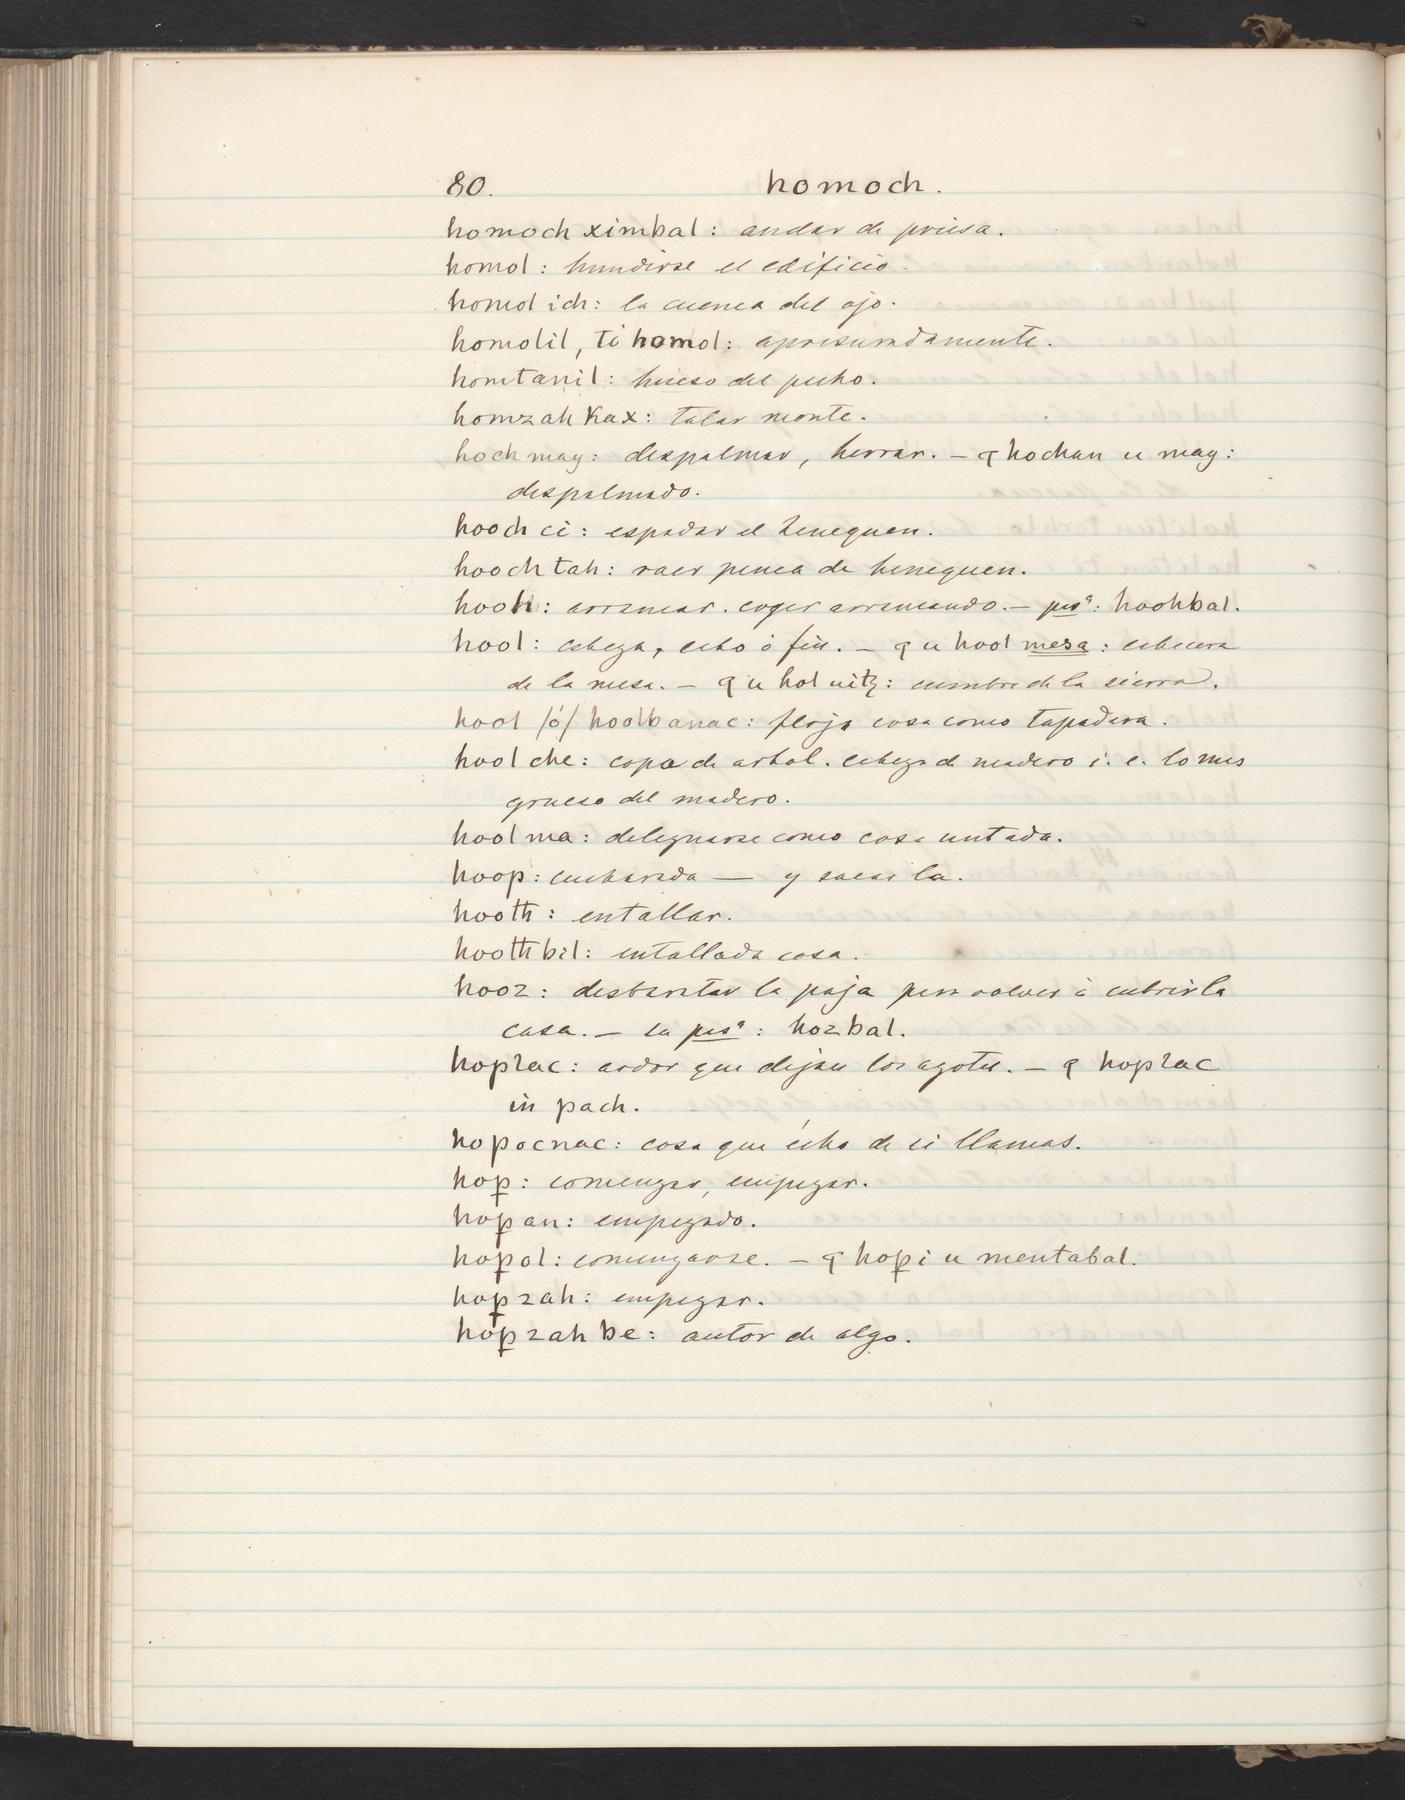 80. homoch.
homoch ximbal: andar de priesa.
homol: hundirse el edificio.
homol ich: la cuenca del ojo.
homolil, ti homol: apresuradamente.
homtanil: hueso del pecho.
homzah kax: talar monte.
hoch may: despalmar, herrar. — ꝗ hochan u may:
despalmado.
hooch ci: espadar el henequen.
hooch tah: raer penca de henequen.
hooh: arrancar. coger arrancando. — pasᵃ: hoohbal.
hool: cabeza, cabo ó fin. — ꝗ u hool mesa: cabecera
de la mesa. — ꝗ u hol uitꜩ: cumbre de la sierra.
hool /ó/ hoolbanac: floja cosa como tapadera.
hool che: copa de arbol. cabeza de madero i. e. lo mas
grueso del madero.
hool ma: deleznarse como cosa untada.
hoop: cucharada — y sacarla.
hooth: entallar.
hooth bil: entallada cosa.
hooz: desbaratar la paja para volver á cubrir la
casa. — su pasᵃ: hozbal.
hoplac: ardor que dejan los azotes. — ꝗ hoplac
in pach.
hopocnac: cosa que echa de si llamas.
hoꝑ: comenzar, empezar.
hoꝑan: empezado.
hoꝑol: comenzarse. — ꝗ hoꝑi u mentabal.
hoꝑzah: empezar.
hoꝑzah be: autor de algo.